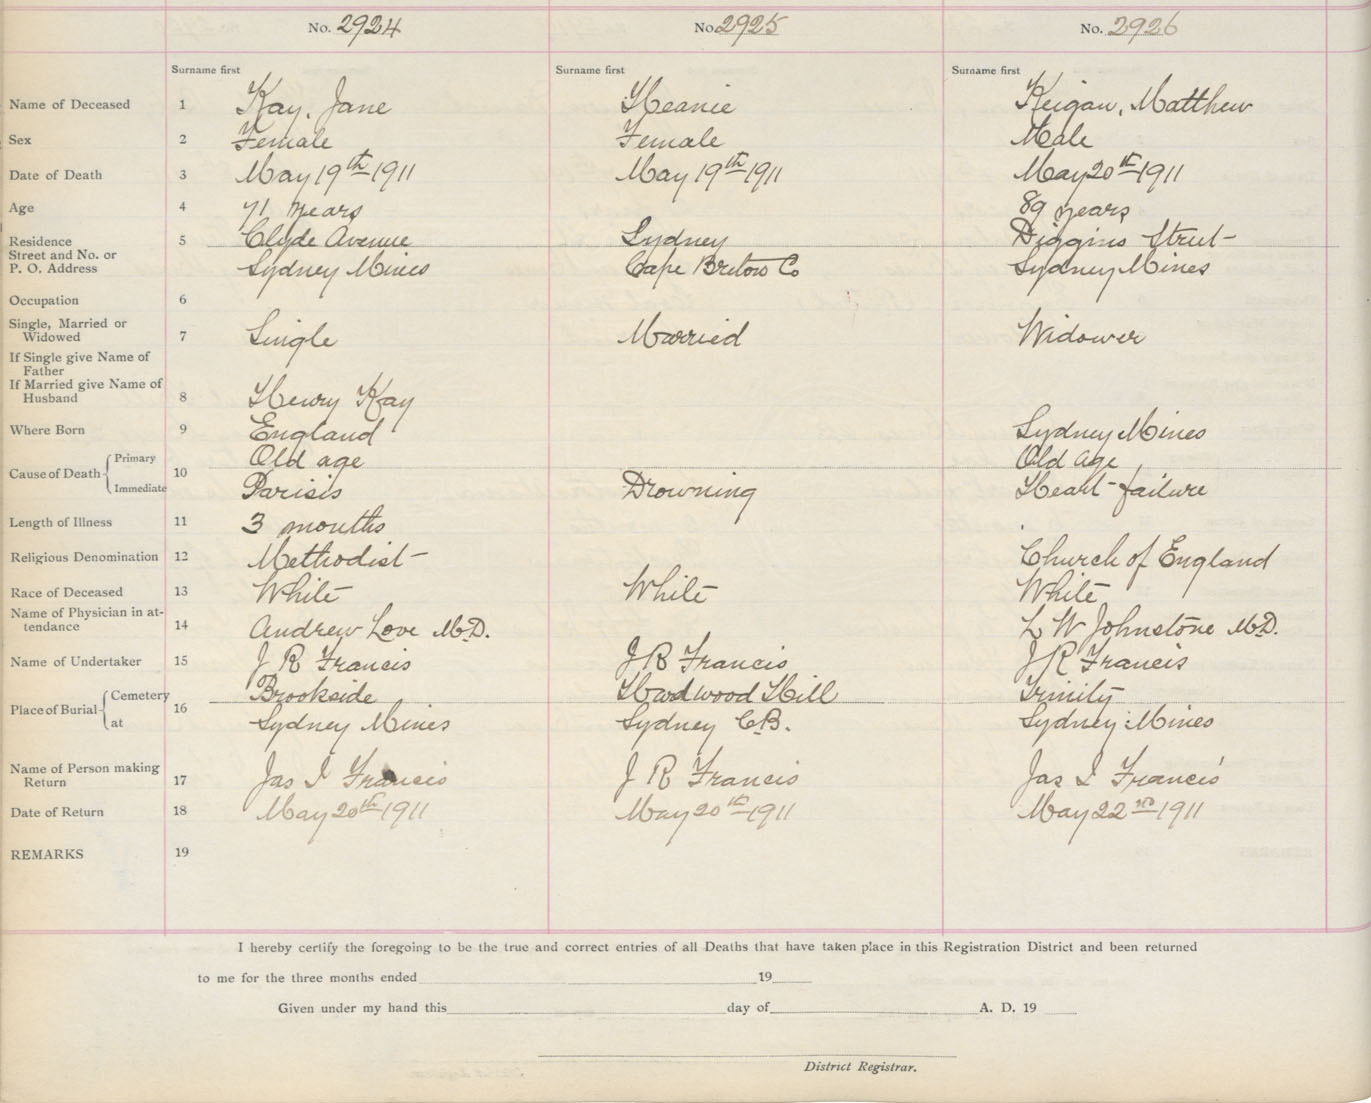 No. 2924 No. 2925 No. 2926
Surname first Surname first Surname first
Name of Deceased 1 Kay, Jane Heanie Keigan, Matthew
Sex 2 Female Female Male
Date of Death 3 May 19th 1911 May 19th 1911 May 20th 1911
Age 4 71 years 89 years
Residence 5 Clyde Avenue Sydney Diggins Street
Street and No. or
P. O. Address Sydney Mines Cape Breton Co Sydney Mines
Occupation 6
Single, Married or
Widowed 7 Single Married Widower
If Single give Name of
Father
If Married give Name of
Husband 8 Henry Kay
Where Born 9 England Sydney Mines
Primary Old age Old Age
Cause of Death 10
Immediate Parisis Drowning Heart failure
Length of Illness 11 3 months
Religious Denomination 12 Methodist Church of England
Race of Deceased 13 White White White
Name of Physician in at-
tendance 14 Andrew Love M.D. L W Johnstone M.D.
Name of Undertaker 15 J R Francis J R Francis J R Francis
Cemetery Brookside Hardwood Hill Trinity
Place of Burial 16
at Sydney Mines Sydney C.B. Sydney Mines
Name of Person making
Return 17 Jas I Francis J R Francis Jas I Francis
Date of Return 18 May 20th 1911 May 20th 1911 May 22nd 1911
REMARKS 19
I hereby certify the foregoing to be the true and correct entries of all Deaths that have taken place in this Registration District and been returned
to me for the three months ended 19
Given under my hand this day of A. D. 19
District Registrar.